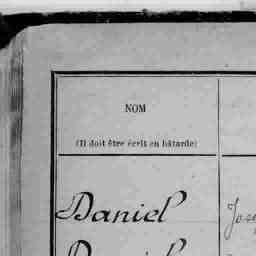 NOM
(Il doit être écrit en bâtarde)
Daniel